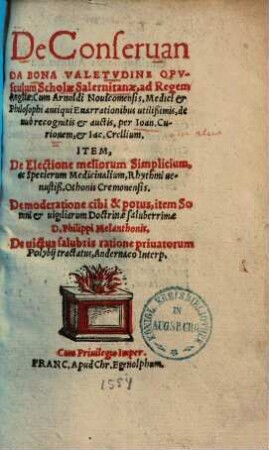 De Conseruan
DA BONA VALETVDINE OPV-
sculum Scholæ Salernitanæ, ad Regem
Angliæ: Cum Arnoldi Nouicomensis, Medici &
Philosophi antiqui Enarrationibus utilißimis, de
nuo recognitis & auctis, per Ioan. Cu-
rionem, & Iac. Crellium.
ITEM,
De Electione meliorum Simplicium,
ac Specierum Medicinalium, Rhythmi ue-
nustiß. Othonis Cremonensis.
De moderatione cibi & potus, item So
mni & uigiliarum Doctrinæ saluberrimæ
D. Philippi Melanthonis.
De uictus salubris ratione priuatorum
Polybij tractatus, Andernaco Interp.
KÖNIGL. KREISBIBLIOTHEK
IN
AUGSBURG
Cum Priuilegio Imper.
FRANC. Apud Chr. Egnolphum.